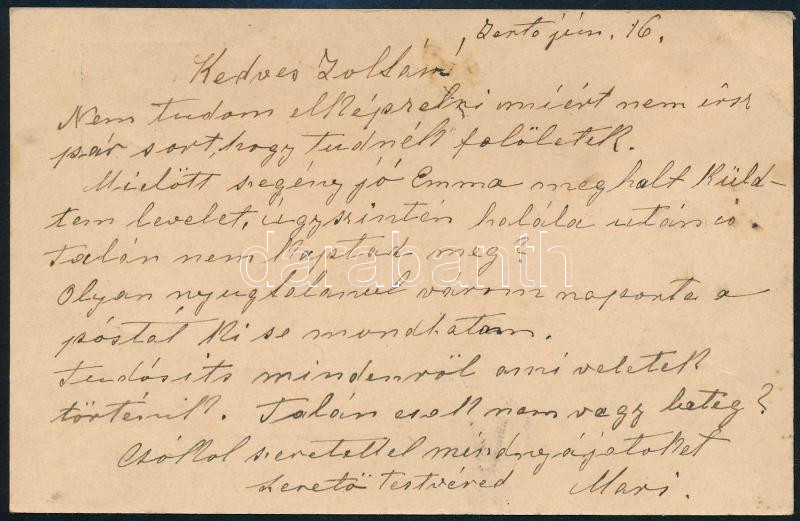 Zenta jún. 16.
Kedves Zoltán!
Nem tudom elképzelni miért nem írsz
pár sort, hogy tudnék felöletek.
Mielött szegény jó Emma meghalt küld-
tem levelet, úgyszintén halála után is.
Talán nem kaptad meg?
Olyan nyugtalanul várom naponta a
póstát ki se mondhatom.
Tudósits mindenröl ami veletek
történik. Talán csak nem vagy beteg?
Csókol szeretettel mindnyájatokat
szeretö testvéred Mari.
darabanth